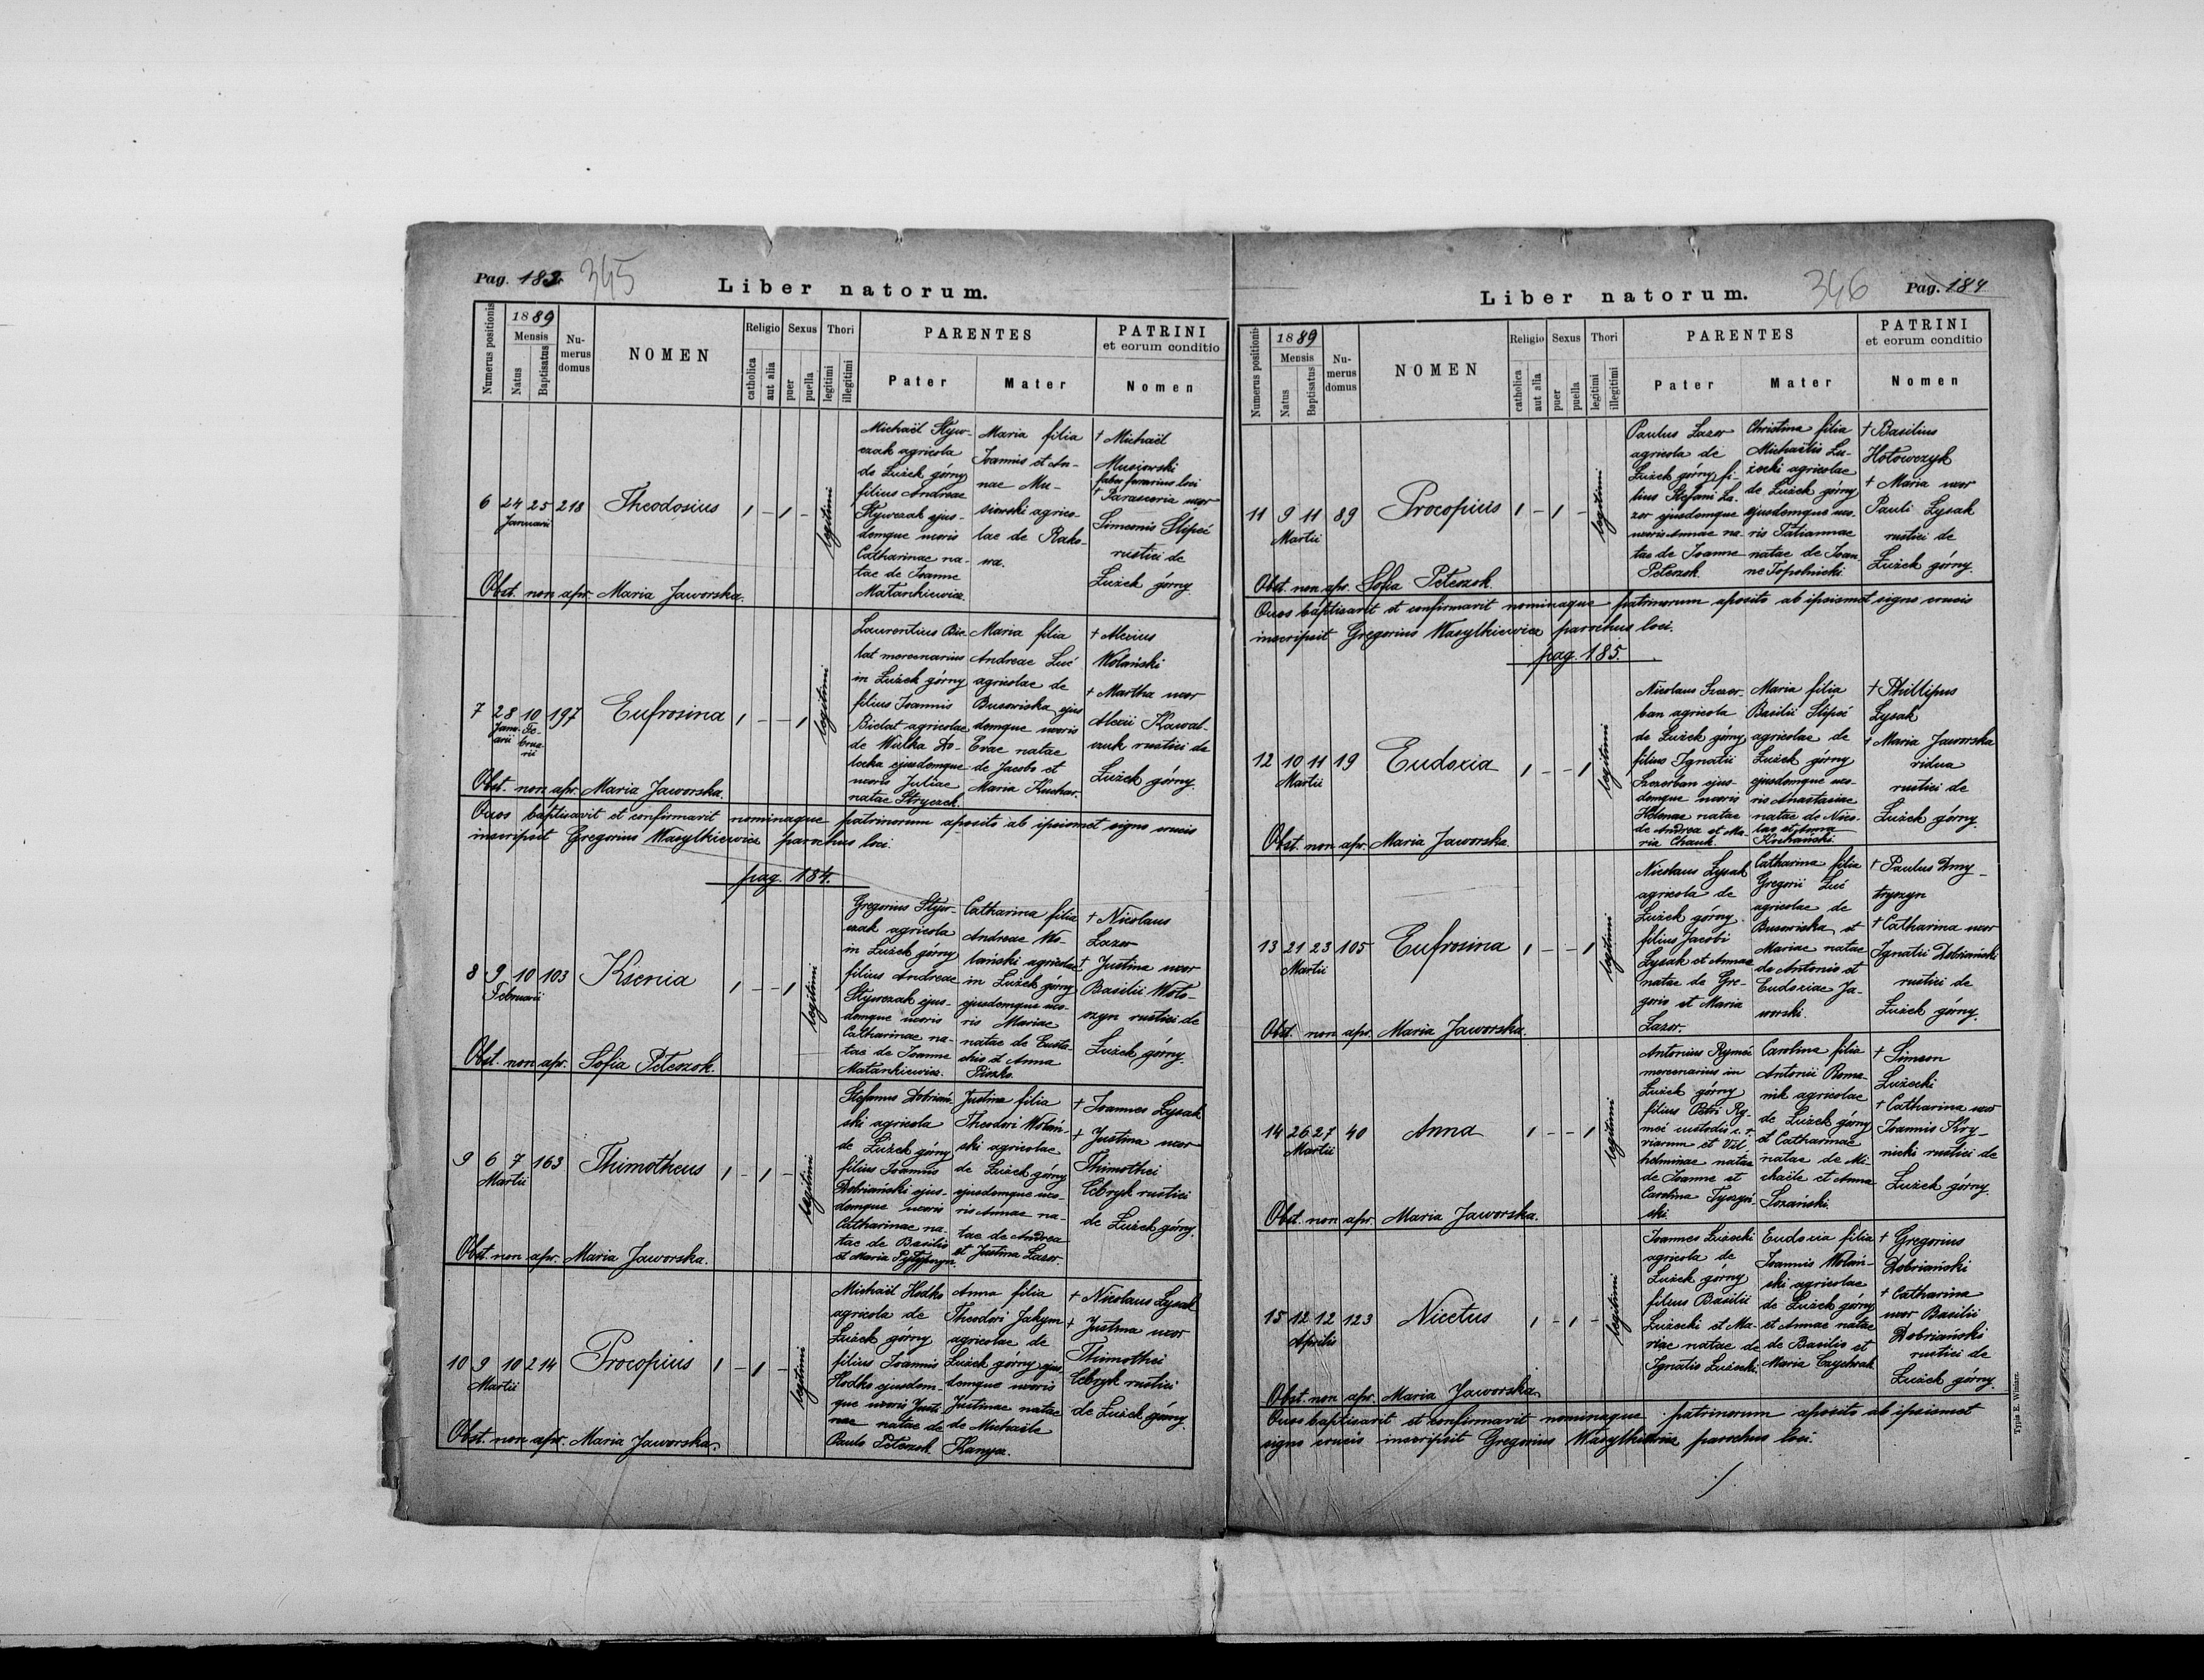 Pag. 183. 345
Liber natorum.
Numerus positionis
1889
Mensis
Natus
Baptisatus
Numerus domus
NOMEN
Religio
catholica
aut alia
Sexus
puer
puella
Thori
legitimi
illegitimi
PARENTES
Pater
Mater
PATRINI
et eorum conditio
Nomen
6 24 25 218 Theodosius 1 - 1 - legitimi
Januarii
Michaël Stywczak
agricola
de Łużek górny
filius Andreae
Stywczak ejusdemque
uxoris
Catharinae natae
de Joanne
Matankiewicz.
Maria filia
Joannis et Annae
Musiowski
agricolae
de Rakowa.
† Michaël
Musiowski
faber ferrarius loci
† Parascevia uxor
Simeonis Slipeć
rustici de
Łużek górny
Obst. non apr. Maria Jaworska.
7 28 10 197 Eufrosina 1 - - 1 legitimi
Januarii Februarii
Laurentius Bielat
mercenarius
in Łużek górny
filius Joannis
Bielat agricolae
de Wulka
ejusdemque
uxoris Juliae
natae Stryczek.
Maria filia
Andreae Luć
agricolae de
Busowiska ejusdemque
uxoris
Evae natae
de Jacobo et
Maria Kuchar.
† Alexius
Wolański
† Martha uxor
Alexii Kowalczuk
rustici de
Łużek górny.
Obst. non apr. Maria Jaworska.
Quos baptisavit et confirmavit nominaque patrinorum aposito ab ipsismet signo crucis
inscripsit Gregorius Wasylkiewicz parochus loci.
pag. 184.
8 9 10 103 Ksenia 1 - - 1 legitimi
Februarii
Gregorius Stywczak
agricola
in Łużek górny
filius Andreae
Stywczak ejusdemque
uxoris
Catharinae natae
de Joanne
Matankiewicz.
Catharina filia
Andreae Wolański
agricolae
in Łużek górny
ejusdemque uxoris
Mariae
natae de Eustachio
et Anna
Piszko.
† Nicolaus
Lazor
† Justina uxor
Basilii Wołoszyn
rustici de
Łużek górny
Obst. non apr. Sofia Peteszok.
9 6 7 163 Thimotheus 1 - 1 - legitimi
Martii
Stefanus Dobriański
agricola
de Łużek górny
filius Joannis
Dobriański ejusdemque
uxoris
Catharinae natae
de Basilio
et Maria
Justina filia
Theodori Wolański
agricolae
de Łużek górny
ejusdemque uxoris
Annae natae
de Andrea
et Justina Lazor.
† Joannes Łysak
† Justina uxor
Thimothei
Cebryk rustici
de Łużek górny.
Obst. non apr. Maria Jaworska.
10 9 10 214 Procopius 1 - 1 - legitimi
Martii
Michaël Hodko
agricola de
Łużek górny
filius Joannis
Hodko ejusdemque
uxoris Justinae
natae de
Paulo Peteszok.
Anna filia
Theodori Jakym
agricolae de
Łużek górny ejusdemque
uxoris
Justinae natae
de Michaële
Kanya.
† Nicolaus Łysak
† Justina uxor
Thimothei
Cebryk rustici
de Łużek górny.
Obst. non apr. Maria Jaworska.
Liber natorum.
346 Pag. 184
Numerus positionis
1889
Mensis
Natus
Baptisatus
Numerus domus
NOMEN
Religio
catholica
aut alia
Sexus
puer
puella
Thori
legitimi
illegitimi
PARENTES
Pater
Mater
PATRINI
et eorum conditio
Nomen
11 9 11 89 Procopius 1 - 1 - legitimi
Martii
Paulus Lazor
agricola de
Łużek górny filius
Stefani Lazor
ejusdemque
uxoris Annae natae
de Joanne
Peteszok.
Christina filia
Michaëlis Łużecki
agricolae
de Łużek górny
ejusdemque uxoris
Tatiannae
natae de Joanne
Topolnicki.
† Basilius
Hołowczyk
† Maria uxor
Pauli Łysak
rustici de
Łużek górny.
Obst. non apr. Sofia Peteszok.
Quos baptisavit et confirmavit nominaque patrinorum aposito ab ipsismet signo crucis
inscripsit Gregorius Wasylkiewicz parochus loci.
pag. 185.
12 10 11 19 Eudoxia 1 - - 1 legitimi
Martii
Nicolaus Szczerban
agricola
de Łużek górny
filius Ignatii
Szczerban ejusdemque
uxoris
Helenae natae
de Andrea et Maria
Chauk.
Maria filia
Basilii Slipeć
agricolae de
Łużek górny
ejusdemque uxoris
Anastasiae
natae de Nicolao
et Anna
† Phillipus
Łysak
† Maria Jaworska
vidua
rustici de
Łużek górny.
Obst. non apr. Maria Jaworska.
13 21 23 105 Eufrosina 1 - - 1 legitimi
Martii
Nicolaus Łysak
agricola de
Łużek górny
filius Jacobi
Łysak et Annae
natae de Gregorio
et Maria
Lazor.
Catharina filia
Gregorii Luć
agricolae de
Busowiska et
Mariae natae
de Antonio et
Eudoxiae Jaworski.
† Paulus Dmytryszyn
† Catharina uxor
Ignatii Dobriański
rustici de
Łużek górny.
Obst. non apr. Maria Jaworska.
14 26 27 40 Anna 1 - - 1 legitimi
Martii
Antonius Rymeć
mercenarius in
Łużek górny
filius Petri Rymeć
custodis
viarum et Vilhelminae
natae
de Joanne et
Carolina Tyszyński.
Carolina filia
Antonii Romanik
agricolae
de Łużek górny
et Catharinae
natae de Michaële
et Anna
Sozański.
† Simeon
Łużecki
† Catharina uxor
Joannis Krynicki
rustici de
Łużek górny.
Obst. non apr. Maria Jaworska.
15 12 12 123 Nicetus 1 - 1 - legitimi
Aprilis
Joannes Łużecki
agricola de
Łużek górny
filius Basilii
Łużecki et Mariae
natae de
Ignatio Łużecki.
Eudoxia filia
Joannis Wolański
agricolae
de Łużek górny
et Annae natae
de Basilio et
Maria Czychrak
† Gregorius
Dobriański
† Catharina
uxor Basilii
Dobriański
rustici de
Łużek górny.
Obst. non apr. Maria Jaworska
Quos baptisavit et confirmavit nominaque patrinorum aposito ab ipsismet
signo crucis inscripsit Gregorius Wasylkiewicz parochus loci.
Typis E. Winiarz.